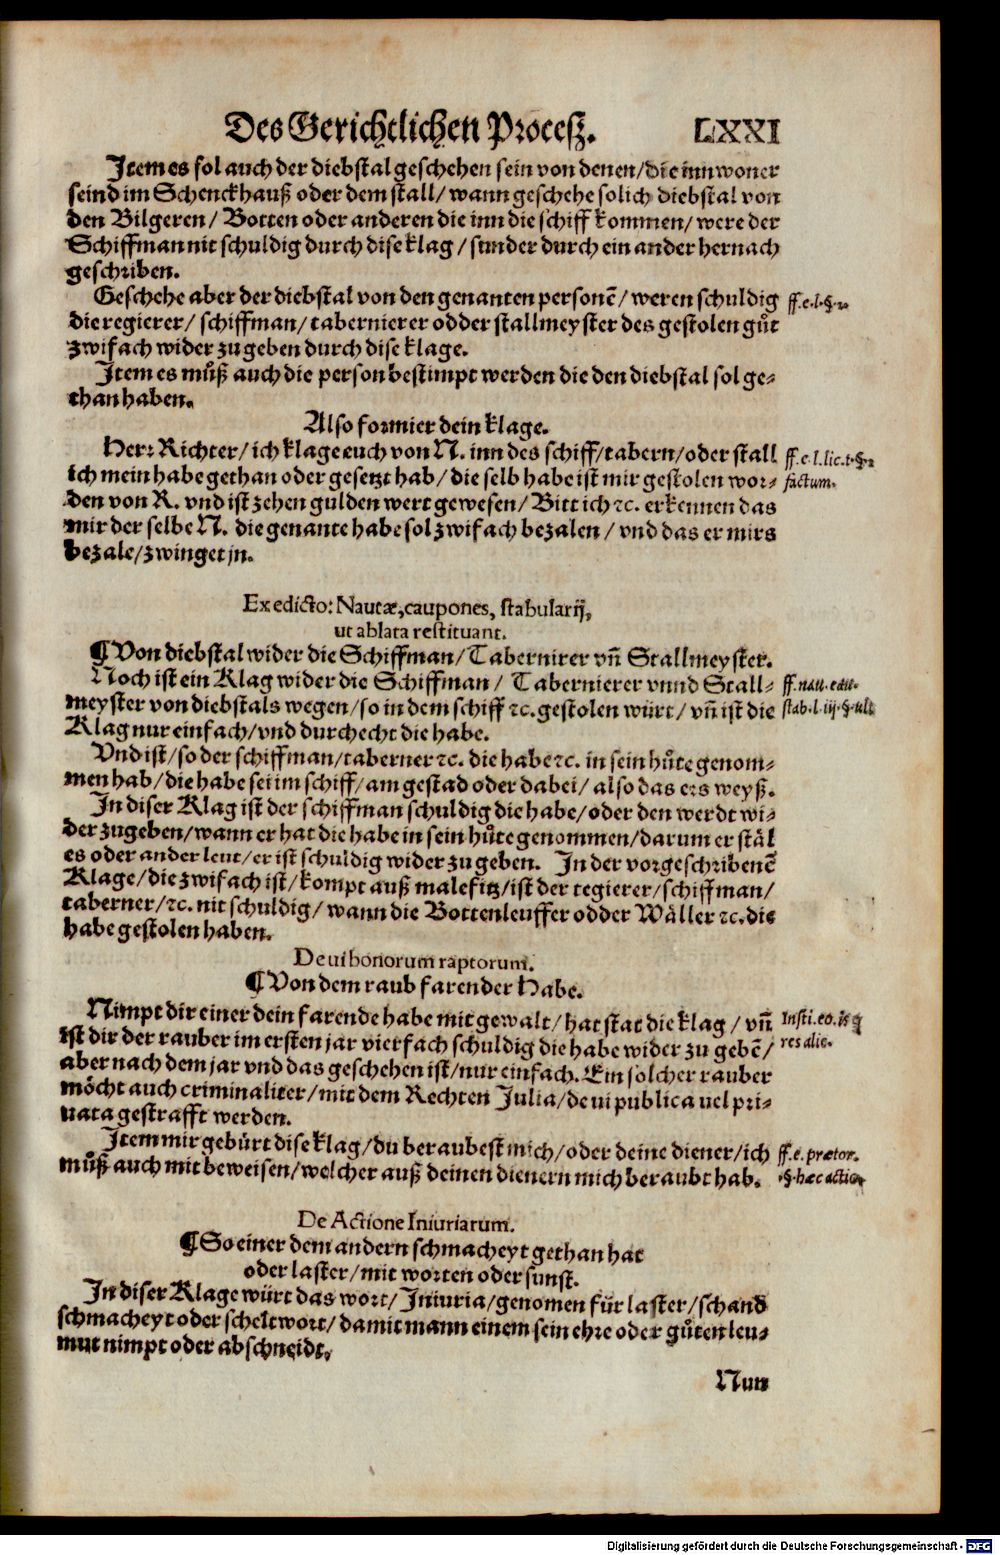 Des Gerichtlichen Procesz. LXXI
Item es sol auch der diebstal geschehen sein von denen/die inn woner
seind im Schenckhauß oder dem stall/ wann geschehe solich diebstal von
den Bilgeren/ Botten oder anderen die inn die schiff kommen/ were der
Schiffman nit schuldig durch dise klag/ sunder durch ein ander hernach
geschriben.
Geschehe aber der diebstal von den genanten personē/ weren schuldig ff.e.l.§.
die regierer/ schiffman/ tabernierer odder stallmeyster des gestolen guͦt
zwifach wider zu geben durch dise klage.
Item es muͦß auch die person bestimpt werden die den diebstal sol ge-
than haben.
Also formier dein klage.
Herr Richter/ ich klage euch von N. inn des schiff/tabern/oder stall ff.e.l.lic.t.§.
ich mein habe gethan oder gesetzt hab/ die selb habe ist mir gestolen wor- factum.
den von R. vnd ist zehen gulden wert gewesen/ Bitt ich ꝛc. erkennen das
mir der selbe N. die genante habe sol zwifach bezalen/ vnd das er mirs
bezale/zwinget jn.
Ex edicto: Nautæ,caupones, stabularij,
ut ablata restituant.
¶Von diebstal wider die Schiffman/ Tabernirer vñ Stallmeyster.
Noch ist ein Klag wider die Schiffman/ Tabernierer vnnd Stall- ff.nau.
meyster von diebstals wegen/ so in dem schiff ꝛc. gestolen würt/ vñ ist die stab.l.iij.§.ult
Klag nur einfach/vnd durchecht die habe.
Vnd ist/ so der schiffman/taberner ꝛc. die habe ꝛc. in sein huͦte genom-
men hab/die habe sei im schiff/ am gestad oder dabei/ also das ers weyß.
In diser Klag ist der schiffman schuldig die habe/oder den werdt wi-
der zugeben/wann er hat die habe in sein huͦte genommen/darum er stäl
es oder ander leut/er ist schuldig wider zu geben. In der vorgeschribenē
Klage/die zwifach ist/kompt auß malefitz/ist der regierer/schiffman/
taberner/ꝛc. nit schuldig/ wann die Bottenleuffer odder Wäller ꝛc. die
habe gestolen haben.
De ui bonorum raptorum.
¶Von dem raub farender Habe.
Nimpt dir einer dein farende habe mit gewalt/ hat stat die klag/ vñ Insti.eo. is q
ist dir der rauber im ersten jar vierfach schuldig die habe wider zu gebē/ res alie.
aber nach dem jar vnd das geschehen ist/nur einfach. Ein solcher rauber
möcht auch criminaliter/ mit dem Rechten Julia/de ui publica uel pri-
uata gestrafft werden.
Item mir gebürt dise klag/du beraubest mich/oder deine diener/ich ff.e.prætor.
muͦß auch mit beweisen/welcher auß deinen dienern mich beraubt hab. .§.hæc actio.
De Actione Iniuriarum.
¶So einer dem andern schmacheyt gethan hat
oder laster/mit worten oder sunst.
In diser Klage würt das wort/Iniuria/genomen für laster/schand
schmacheyt oder scheltwort/damit mann einem sein ehre oder guͦten leu-
mut nimpt oder abschneidt,
Nun
Digitalisierung gefördert durch die Deutsche Forschungsgemeinschaft - DFG